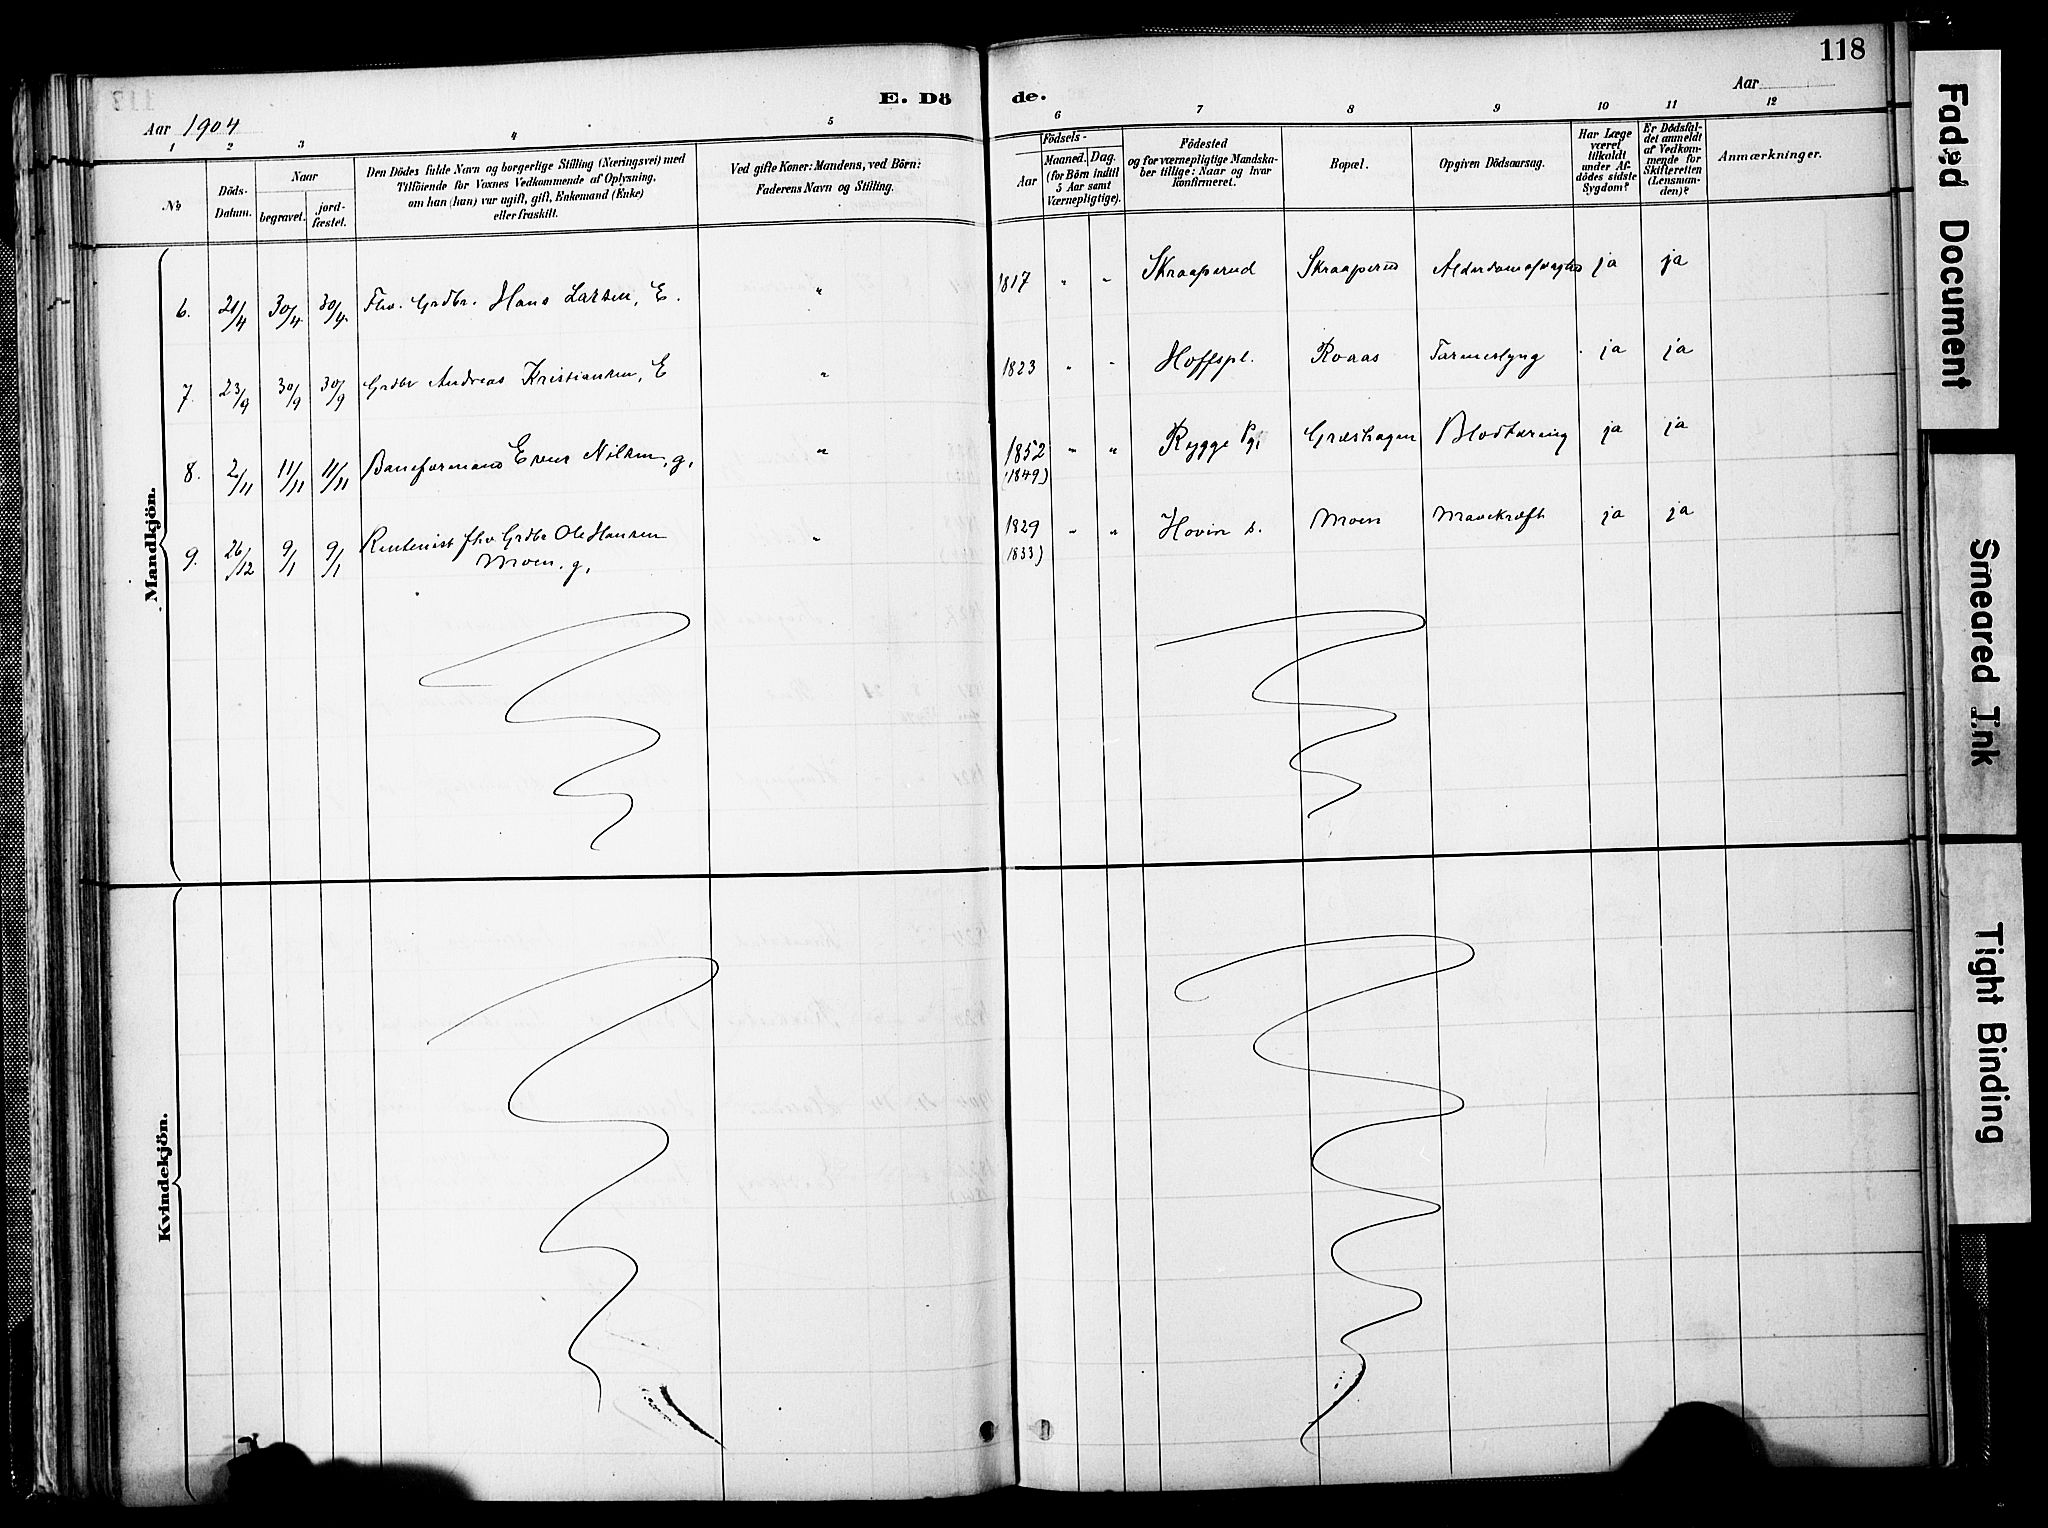 118
E. Dö de.
Aar 1904
Aar
1 2 3 4 5 6 7 8 9 10 11 12
No
Döds-Datum.
Naar
begravet.
jord-fæstet.
Den Dödes fulde Navn og borgerlige Stilling (Næringsvei) med
Tilföiende for Voxnes Vedkommende af Oplysning,
om han (hun) var ugift, gift, Enkemand (Enke)
eller fraskilt.
Ved gifte Koner: Mandens, ved Börn:
Faderens Navn og Stilling.
Födsels-
Aar
Maaned. Dag.
(for Börn indtil
5 Aar samt
Værnepligtige).
Födested
og for værnepligtige Mandska-
ber tillige: Naar og hvor
Konfirmeret.
Bopæl.
Opgiven Dödsaarsag.
Har Læge
været
tilkaldt
under Af-
dödes sidste
Sygdom?
Er Dödsfal-
det anmeldt
af Vedkom-
mende for
Skifteretten
(Lensman-
den)?
Anmærkninger.
Mandkjön.
6. 21/4 30/4 30/4 Fhv. Grdbr. Hans Larsen, E. " 1817 " " Skraaperud Skraaperud ja ja
7. 23/9 30/9 30/9 Grdbr Andreas Kristiansen, E " 1823 " " Hoffspl. Roaas Tarmeslyng ja ja
8. 2/11 11/11 11/11 Baneformand Nilsen, g, " 1852 " " Rygge Pg, Græshagen Blodtæring ja ja
(1849)
9. 26/12 9/1 9/1 Rentenist fhv. Grdbr Ole Hansen " 1829 " " Hovin s. Moen Mavekræft ja ja
Moen. g, 1833)
Kvindekjön.
Faded Document
Smeared Ink
Tight Binding